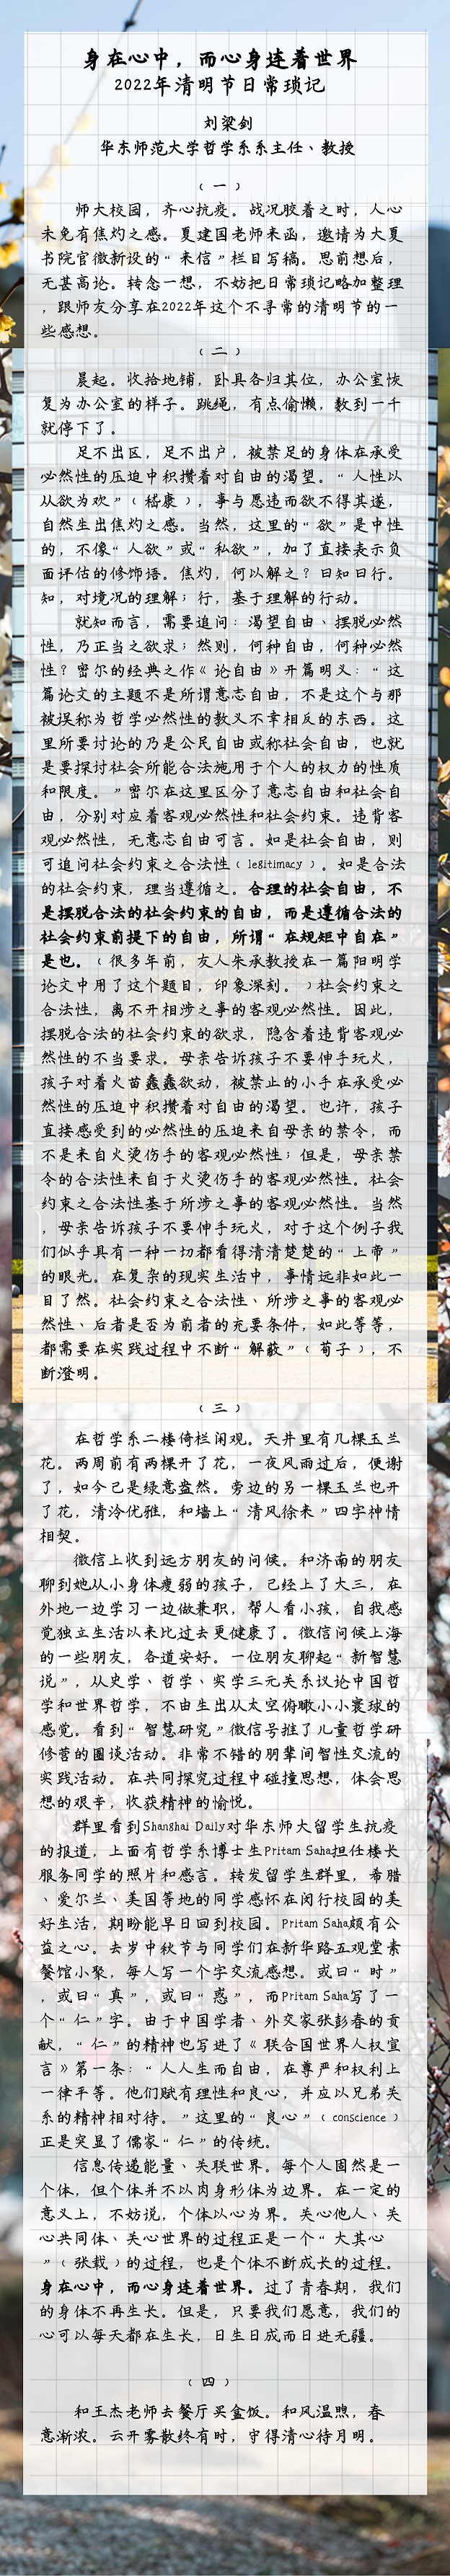 身在心中，而心身连着世界
2022年清明节日常琐记
刘梁剑
华东师范大学哲学系系主任、教授
（一）
师大校园，齐心抗疫。战况胶着之时，人心
未免有焦灼之感。夏建国老师来函，邀请为大夏
书院官微新设的“来信”栏目写稿。思前想后，
无甚高论。转念一想，不妨把日常琐记略加整理
，跟师友分享在2022年这个不寻常的清明节的一
些感想。
（二）
晨起。收拾地铺，卧具各归其位，办公室恢
复为办公室的样子。跳绳，有点偷懒，数到一千
就停下了。
足不出区，足不出户，被禁足的身体在承受
必然性的压迫中积攒着对自由的渴望。“人性以
从欲为欢”（嵇康），事与愿违而欲不得其遂，
自然生出焦灼之感。当然，这里的“欲”是中性
的，不像“人欲”或“私欲”，加了直接表示负
面评估的修饰语。焦灼，何以解之？曰知曰行。
知，对境况的理解；行，基于理解的行动。
就知而言，需要追问：渴望自由、摆脱必然
性，乃正当之欲求；然则，何种自由，何种必然
性？密尔的经典之作《论自由》开篇明义：“这
篇论文的主题不是所谓意志自由，不是这个与那
被误称为哲学必然性的教义不幸相反的东西。这
里所要讨论的乃是公民自由或称社会自由，也就
是要探讨社会所能合法施用于个人的权力的性质
和限度。”密尔在这里区分了意志自由和社会自
由，分别对应着客观必然性和社会约束。违背客
观必然性，无意志自由可言。如是社会自由，则
可追问社会约束之合法性（legitimacy）。如是合法
的社会约束，理当遵循之。合理的社会自由，不
是摆脱合法的社会约束的自由，而是遵循合法的
社会约束前提下的自由，所谓“在规矩中自在”
是也。（很多年前，友人朱承教授在一篇阳明学
论文中用了这个题目，印象深刻。）社会约束之
合法性，离不开相涉之事的客观必然性。因此，
摆脱合法的社会约束的欲求，隐含着违背客观必
然性的不当要求。母亲告诉孩子不要伸手玩火，
孩子对着火苗蠢蠢欲动，被禁止的小手在承受必
然性的压迫中积攒着对自由的渴望。也许，孩子
直接感受到的必然性的压迫来自母亲的禁令，而
不是来自火烫伤手的客观必然性；但是，母亲禁
令的合法性来自于火烫伤手的客观必然性。社会
约束之合法性基于所涉之事的客观必然性。当然
，母亲告诉孩子不要伸手玩火，对于这个例子我
们似乎具有一种一切都看得清清楚楚的“上帝”
的眼光。在复杂的现实生活中，事情远非如此一
目了然。社会约束之合法性、所涉之事的客观必
然性、后者是否为前者的充要条件，如此等等，
都需要在实践过程中不断“解蔽”（荀子），不
断澄明。
（三）
在哲学系二楼倚栏闲观。天井里有几棵玉兰
花。两周前有两棵开了花，一夜风雨过后，便谢
了，如今已是绿意盎然。旁边的另一棵玉兰也开
了花，清泠优雅，和墙上“清风徐来”四字神情
相契。
微信上收到远方朋友的问候。和济南的朋友
聊到她从小身体瘦弱的孩子，已经上了大三，在
外地一边学习一边做兼职，帮人看小孩，自我感
觉独立生活以来比过去更健康了。微信问候上海
的一些朋友，各道安好。一位朋友聊起“新智慧
说”，从史学、哲学、实学三元关系议论中国哲
学和世界哲学，不由生出从太空俯瞰小小寰球的
感觉。看到“智慧研究”微信号推了儿童哲学研
修营的圆谈活动。非常不错的朋辈间智性交流的
实践活动。在共同探究过程中碰撞思想，体会思
想的艰辛，收获精神的愉悦。
群里看到Shanghai Daily对华东师大留学生抗疫
的报道，上面有哲学系博士生Pritam Saha担任楼长
服务同学的照片和感言。转发留学生群里，希腊
、爱尔兰、美国等地的同学感怀在闵行校园的美
好生活，期盼能早日回到校园。Pritam Saha颇有公
益之心。去岁中秋节与同学们在新华路五观堂素
餐馆小聚，每人写一个字交流感想。或曰“时”
，或曰“真”，或曰“惑”，而Pritam Saha写了一
个“仁”字。由于中国学者、外交家张彭春的贡
献，“仁”的精神也写进了《联合国世界人权宣
言》第一条：“人人生而自由，在尊严和权利上
一律平等。他们赋有理性和良心，并应以兄弟关
系的精神相对待。”这里的“良心”（conscience）
正是突显了儒家“仁”的传统。
信息传递能量、关联世界。每个人固然是一
个体，但个体并不以肉身形体为边界。在一定的
意义上，不妨说，个体以心为界。关心他人、关
心共同体、关心世界的过程正是一个“大其心
”（张载）的过程，也是个体不断成长的过程。
身在心中，而心身连着世界。过了青春期，我们
的身体不再生长。但是，只要我们愿意，我们的
心可以每天都在生长，日生日成而日进无疆。
（四）
和王杰老师去餐厅买盒饭。和风温煦，春
意渐浓。云开雾散终有时，守得清心待月明。